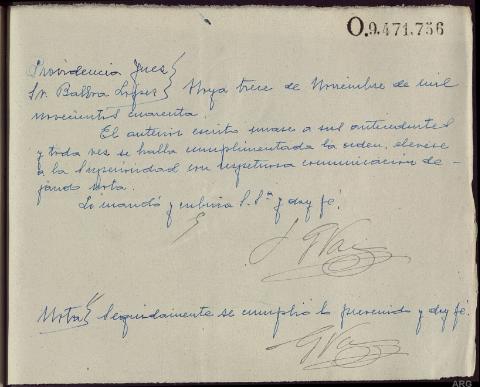 O.9.471.756
Providencia Juez
Sr. Balboa López } Moya trece de Noviembre de mil
novecientos cuarenta.
El anterior escrito unase a sus antecedentes
y toda vez se halla cumplimentada la orden, elevese
a la Superioridad con respetuosa comunicación de-
jando nota.
Lo mandó y rubrica S.Sª y doy fé.
Nota} Seguidamente se cumplió lo prevenido y doy fé.
ARG